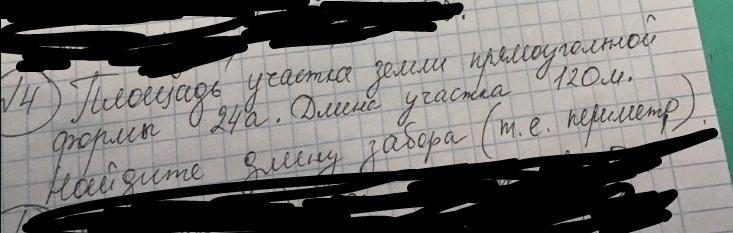 √4 Площадь участка земли прямоугольной
формы 24а. Длина участка 120м.
Найдите длину забора (т.е. периметр).